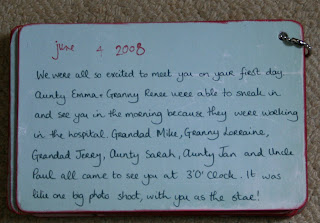 june 4 2008
We were all so excited to meet you on your first day.
Aunty Emma + Granny Renee were able to sneak in
and see you in the morning because they were working
in the hospital. Grandad Mike, Granny Lorraine,
Grandad Jerry, Aunty Sarah, Aunty Jan and Uncle
Paul all came to see you at 3'O'Clock. It was
like one big photo shoot, with you as the star!